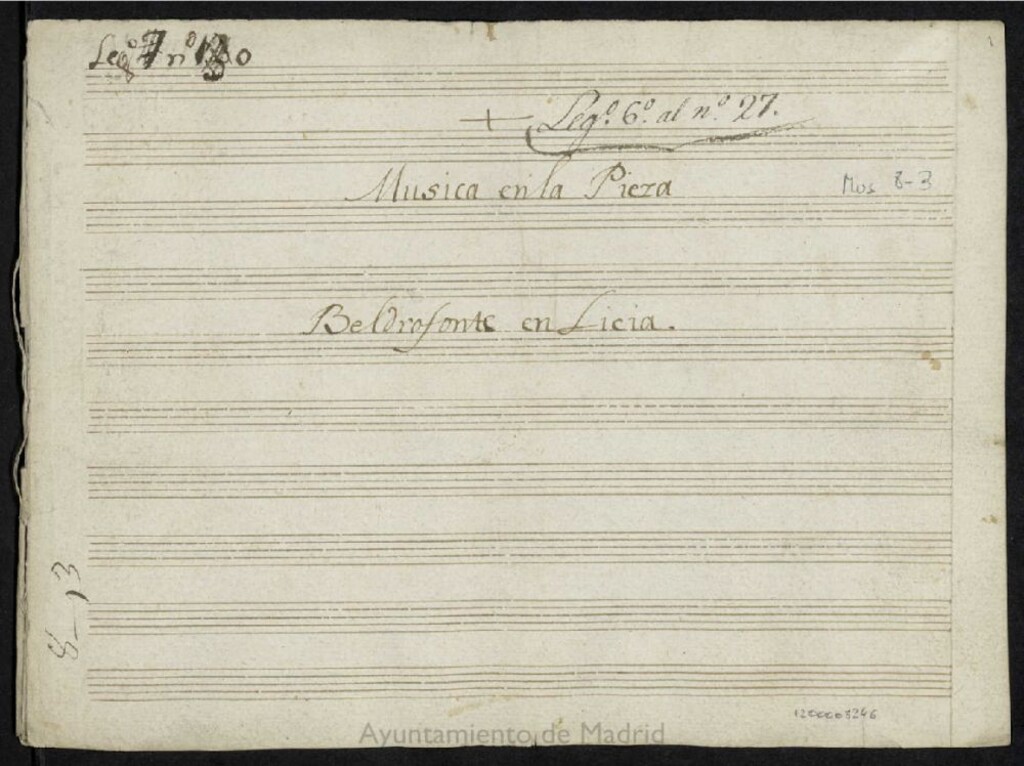 Leg.º 7 nº
+ Leg.º 6.º al n.º 27.
Musica en la Pieza
Mus 8-3
Beldrofonte en Licia.
8-13
1200003246
Ayuntamiento de Madrid